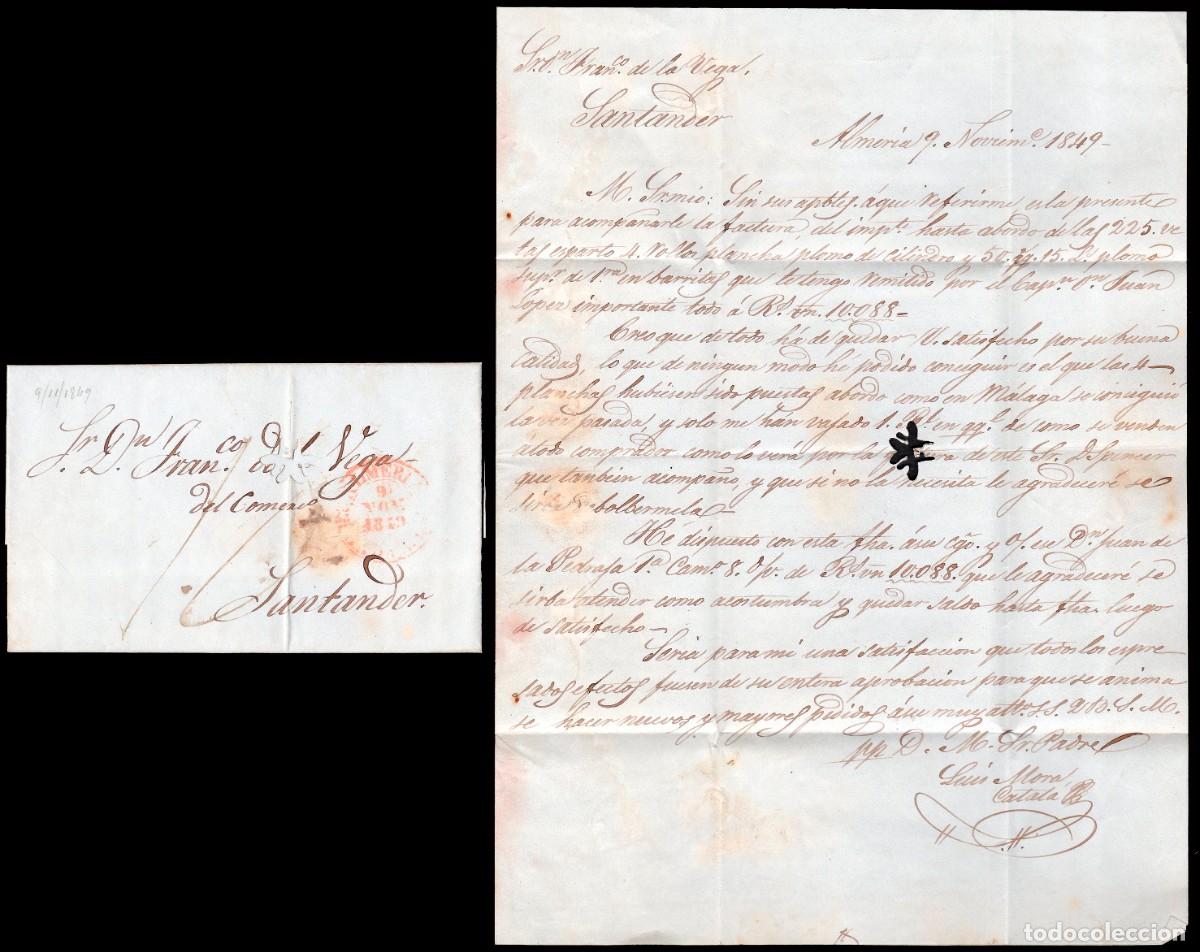 9/11/1849
Sr. Dn Franco de l Vega
del Comercio
ALMERI
9
NOV
1849
Santander.
Sr. Dn Franco. de la Vega.
Santander
Almeria 9. Novieme. 1849-
M. Sr. mio: Sin sus apbles. á que referirme es la presente
para acompañarle la factura, del impte. hasta abordo de las 225. ve
tas esparto 4. rollos plancha plomo de cilindro y 50. qq. 15. L. plomo
supr. de 1ra en barritas que le tengo remitido por el Capn. Dn. Juan
Lopez importante todo á Rs. vn. 10.088=
Creo que de todo há de quedar V. satisfecho por su buena
calidad, lo que de ningun modo hé podido conseguir es el que las 4
planchas hubiesen sido puestas abordo como en Málaga se consiguió
la vez pasada, y solo me han vajado 1. Rl. en qql. de como se venden
á todo comprador como lo verá por la de este Sr. D. Spencer
que tambien acompaño, y que si no la necesita le agradeceré se
sirva debolbermela
Hé dispuesto con esta fha. á su cgo. y o/. ese Dn. Juan de
la Pedraja 1a Camo. 8. d/v. de Rs. vn 10.088. que le agradeceré se
sirba atender como acostumbra y quedar saldo hasta fha. luego
de satisfecho
Seria para mi una satisfaccion que todos los espre-
sados efectos fuesen de su entera aprobacion para que se anima
se hacer nuevos y mayores pedidos á su muy atto. S. S. Q. B. S. M.
pp D. M. Sr. Padre
Luis Mora
Catalá
todocoleccion